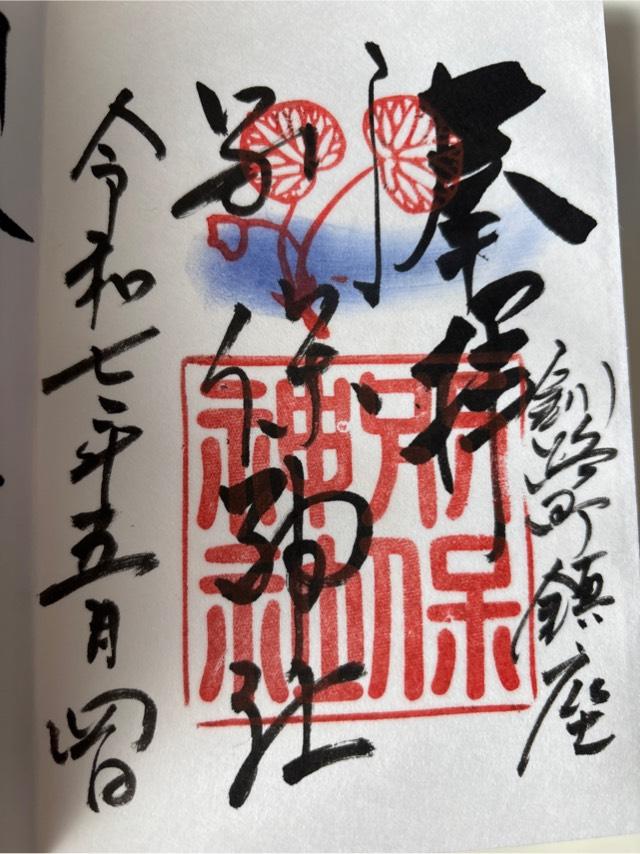 釧路町鎮座
奉拝
別保神社
別保
神社
令和七年五月四日